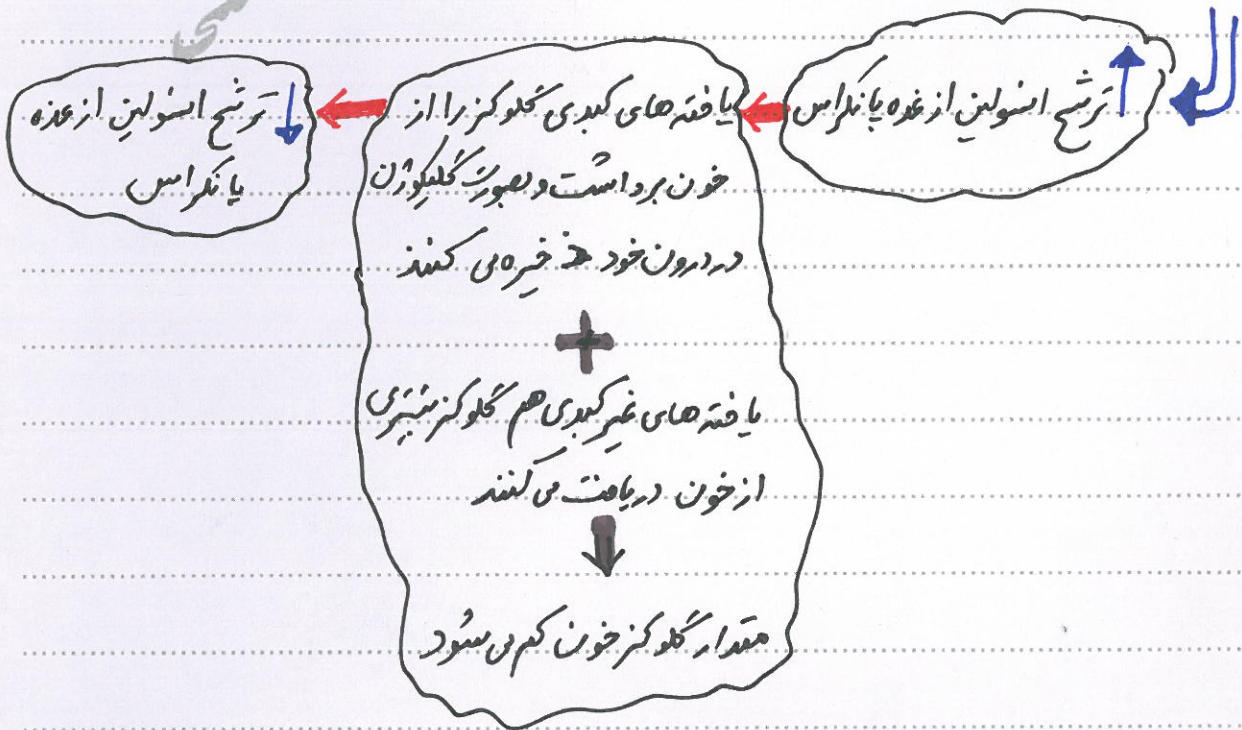 ترشح انسولین از غده پانکراس
یافته های کبدی گلوکز را از
خون برداشت و بصورت گلیکوژن
در درون خود ذخیره می کنند
+
یافته های غیر کبدی هم گلوکز بیشتری
از خون دریافت می کنند
مقدار گلوکز خون کم می شود
ترشح انسولین از غده
پانکراس